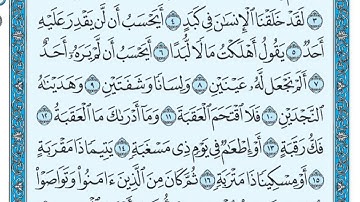 ٣ لَقَدْ خَلَقْنَا ٱلْإِنسَٰنَ فِى كَبَدٍ ٤ أَيَحْسَبُ أَن لَّن يَقْدِرَ عَلَيْهِ
أَحَدٌ ٥ يَقُولُ أَهْلَكْتُ مَالًا لُّبَدًا ٦ أَيَحْسَبُ أَن لَّمْ يَرَهُۥٓ أَحَدٌ
٧ أَلَمْ نَجْعَل لَّهُۥ عَيْنَيْنِ ٨ وَلِسَانًا وَشَفَتَيْنِ ٩ وَهَدَيْنَٰهُ
ٱلنَّجْدَيْنِ ١٠ فَلَا ٱقْتَحَمَ ٱلْعَقَبَةَ ١١ وَمَآ أَدْرَىٰكَ مَا ٱلْعَقَبَةُ ١٢
فَكُّ رَقَبَةٍ ١٣ أَوْ إِطْعَٰمٌ فِى يَوْمٍ ذِى مَسْغَبَةٍ ١٤ يَتِيمًا ذَا مَقْرَبَةٍ
١٥ أَوْ مِسْكِينًا ذَا مَتْرَبَةٍ ١٦ ثُمَّ كَانَ مِنَ ٱلَّذِينَ ءَامَنُوا۟ وَتَوَاصَوْا۟